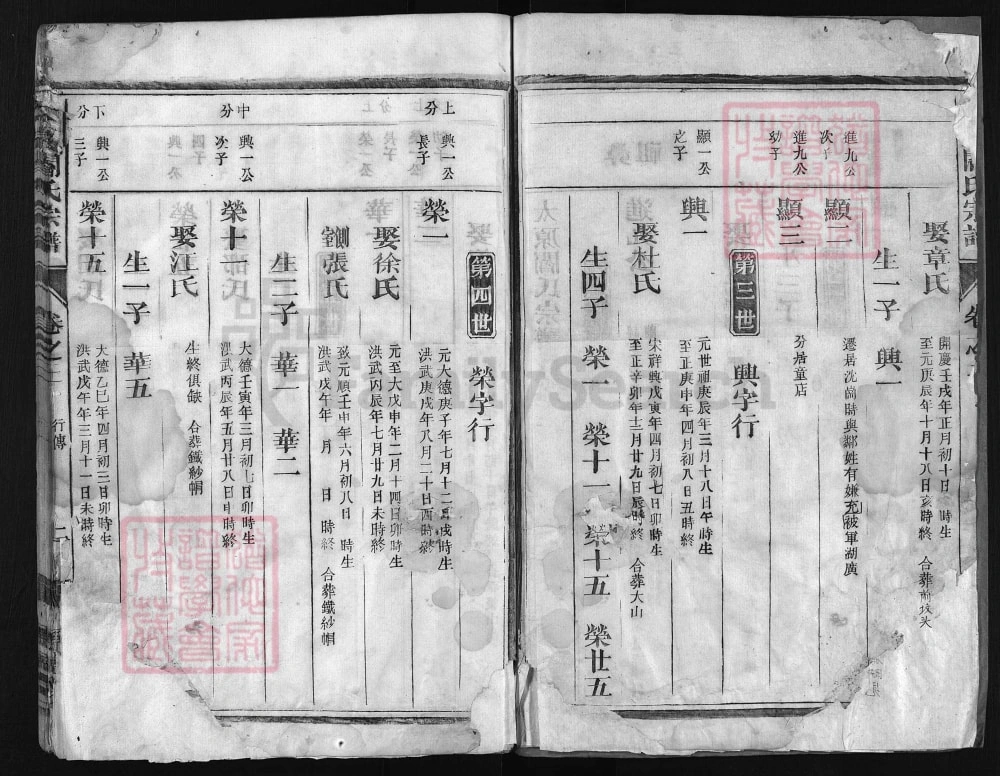 氏宗譜
娶章氏
開慶壬戌年正月初十日 時生
至元庚辰年十月十八日亥時終
合葬前坟头
生一子 興一
進九公
次子
顯二
遷居沈崗時與鄰姓有嫌充被軍湖廣
進九公
幼子
顯三
分居童店
第三世
興字行
顯一公
之子
興一
元世祖庚辰年三月十八日午時生
至正庚申年四月初八日五時終
娶杜氏
宋祥興戊寅年四月初七日卯時生
至正辛卯年十二月廿九日辰時終
合葬大山
生四子 榮一 榮十一 榮十五 榮廿五
第四世
榮字行
上分
興一公
長子
榮一
元大德庚子年七月十二日戌時生
洪武庚戌年八月二十日酉時終
娶徐氏
元至大戊申年二月十四日卯時生
洪武丙辰年七月廿九日未時終
側室張氏
致元順壬申年六月初八日 時生
洪武戊午年 月 日 時終
合葬鐵紗帽
生二子 華一 華二
中分
興一公
次子
榮十一
大德壬寅年三月初七日卯時生
洪武丙辰年五月廿八日申時終
娶江氏
生終俱缺 合葬鐵紗帽
生一子 華五
下分
興一公
三子
榮十五
大德乙巳年四月初三日卯時生
洪武戊午年三月十一日未時終
周氏宗譜
卷之二
行傳
二
FamilySearch